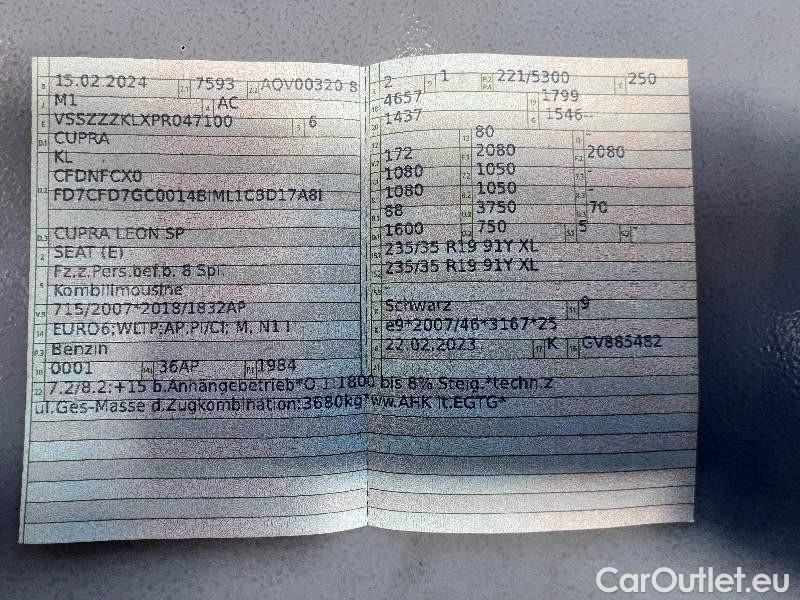 B 15.02.2024 2.1 7593 2.2 AQV00320 8
J M1 4 AC
E VSSZZZKLXPR047100 3 6
D.1 CUPRA
KL
CFDNFCX0
D.2 FD7CFD7GC0014BIML1CBD17A8I
D.3 CUPRA LEON SP
2 SEAT (E)
Fz.z.Pers.bef.b. 8 Spl.
5 Kombilimousine
V.9 715/2007*2018/1832AP
14 EURO6;WLTP;AP;PI/CI; M, N1 I
P.3 Benzin
10 0001 14.1 36AP P.1 1984
22 7.2/8.2:+15 b.Anhängebetrieb*O.1:1800 bis 8% Steig.*techn.z
ul.Ges-Masse d.Zugkombination:3680kg*ww.AHK lt.EGTG*
2 1 221/5300 250
18 4657 19 1799
20 1437 G 1546--
80 -
172 2080 2080
1080 1050 -
1080 1050 -
88 3750 70
1600 750 5 -
235/35 R19 91Y XL
235/35 R19 91Y XL
Schwarz 11 9
e9*2007/46*3167*25
22.02.2023 17 K 16 GV885482
CarOutlet.eu